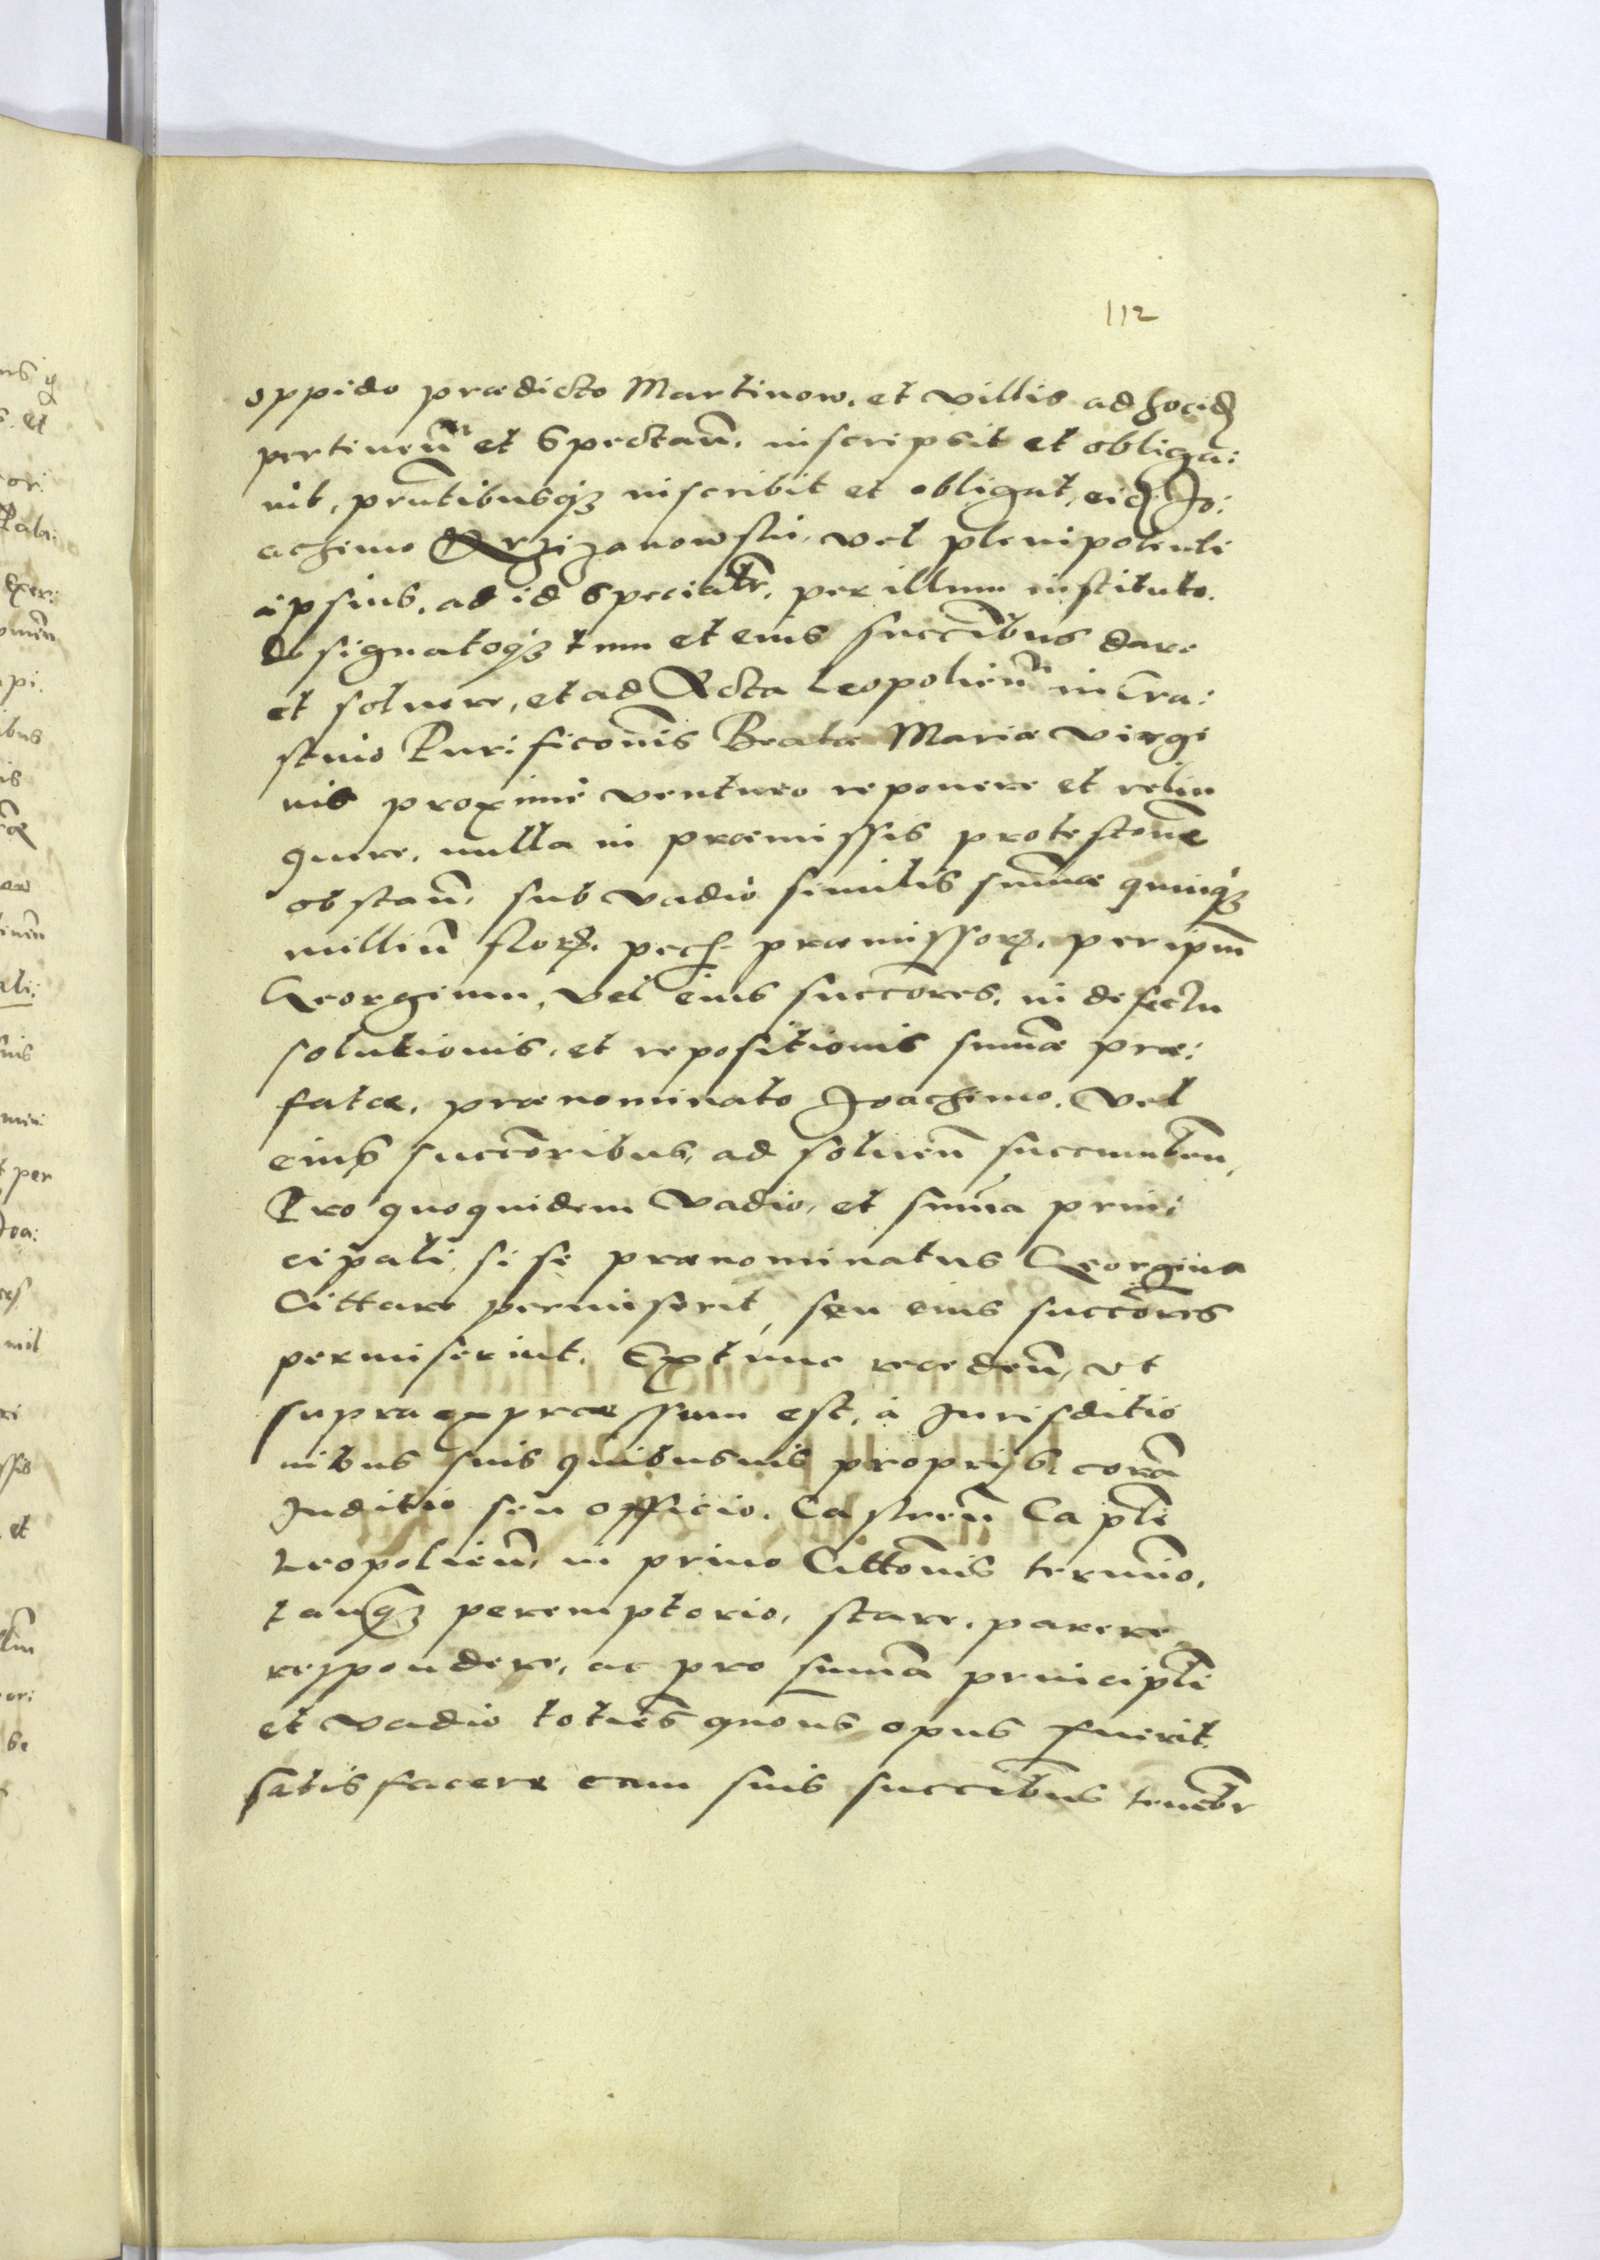 112
oppido prædicto Martinow. et villis ad hocid
pertineñ et Spectañ. inscripsit et obliga:
uit, pñtibusqȝ inscribit et obligat, eid Jo:
achimo Krzizanowski, vel plenipotenti
ipsius, ad id specialr̃. per illum instituto.
designatoqȝ tum et eius succĩbus dare
et soluere, et ad Acta Leopolieñ in Cra:
stino Purificoñis Beatæ Mariæ Virgi
nis proximè venturo reponere et relin
quere, nulla in præmissis protestoñe
obstañ, sub vadio similis sum̃æ quinqȝ
milliũ flor. pecũ præmissor. per ipm̃
Georgium, vel eius succõres, in defectu
solutionis, et repositionis sum̃æ præ:
fatæ, prænominato Joachimo. vel
eius succõribus, ad solueñ succumbeñ,
Pro quoquidem vadio, et sum̃a prin:
cipali, si se prænominatus Georgius
Cittare permiserit, seu eius succõres
permiserint. Extunc recedeñ, vt
supra expræssum est, à Jurisditio
nibus suis quibusuis proprijs, corã
Juditio seu officio. Castreñ Capłi
Leopolieñ, in primo Cittoñis termĩo,
tanqȝ peremptorio, stare, parere
respondere, ac pro sum̃a principłi
et vadio totiẽs quoñs opus fuerit
satisfacere cum suis succĩbus tenebr